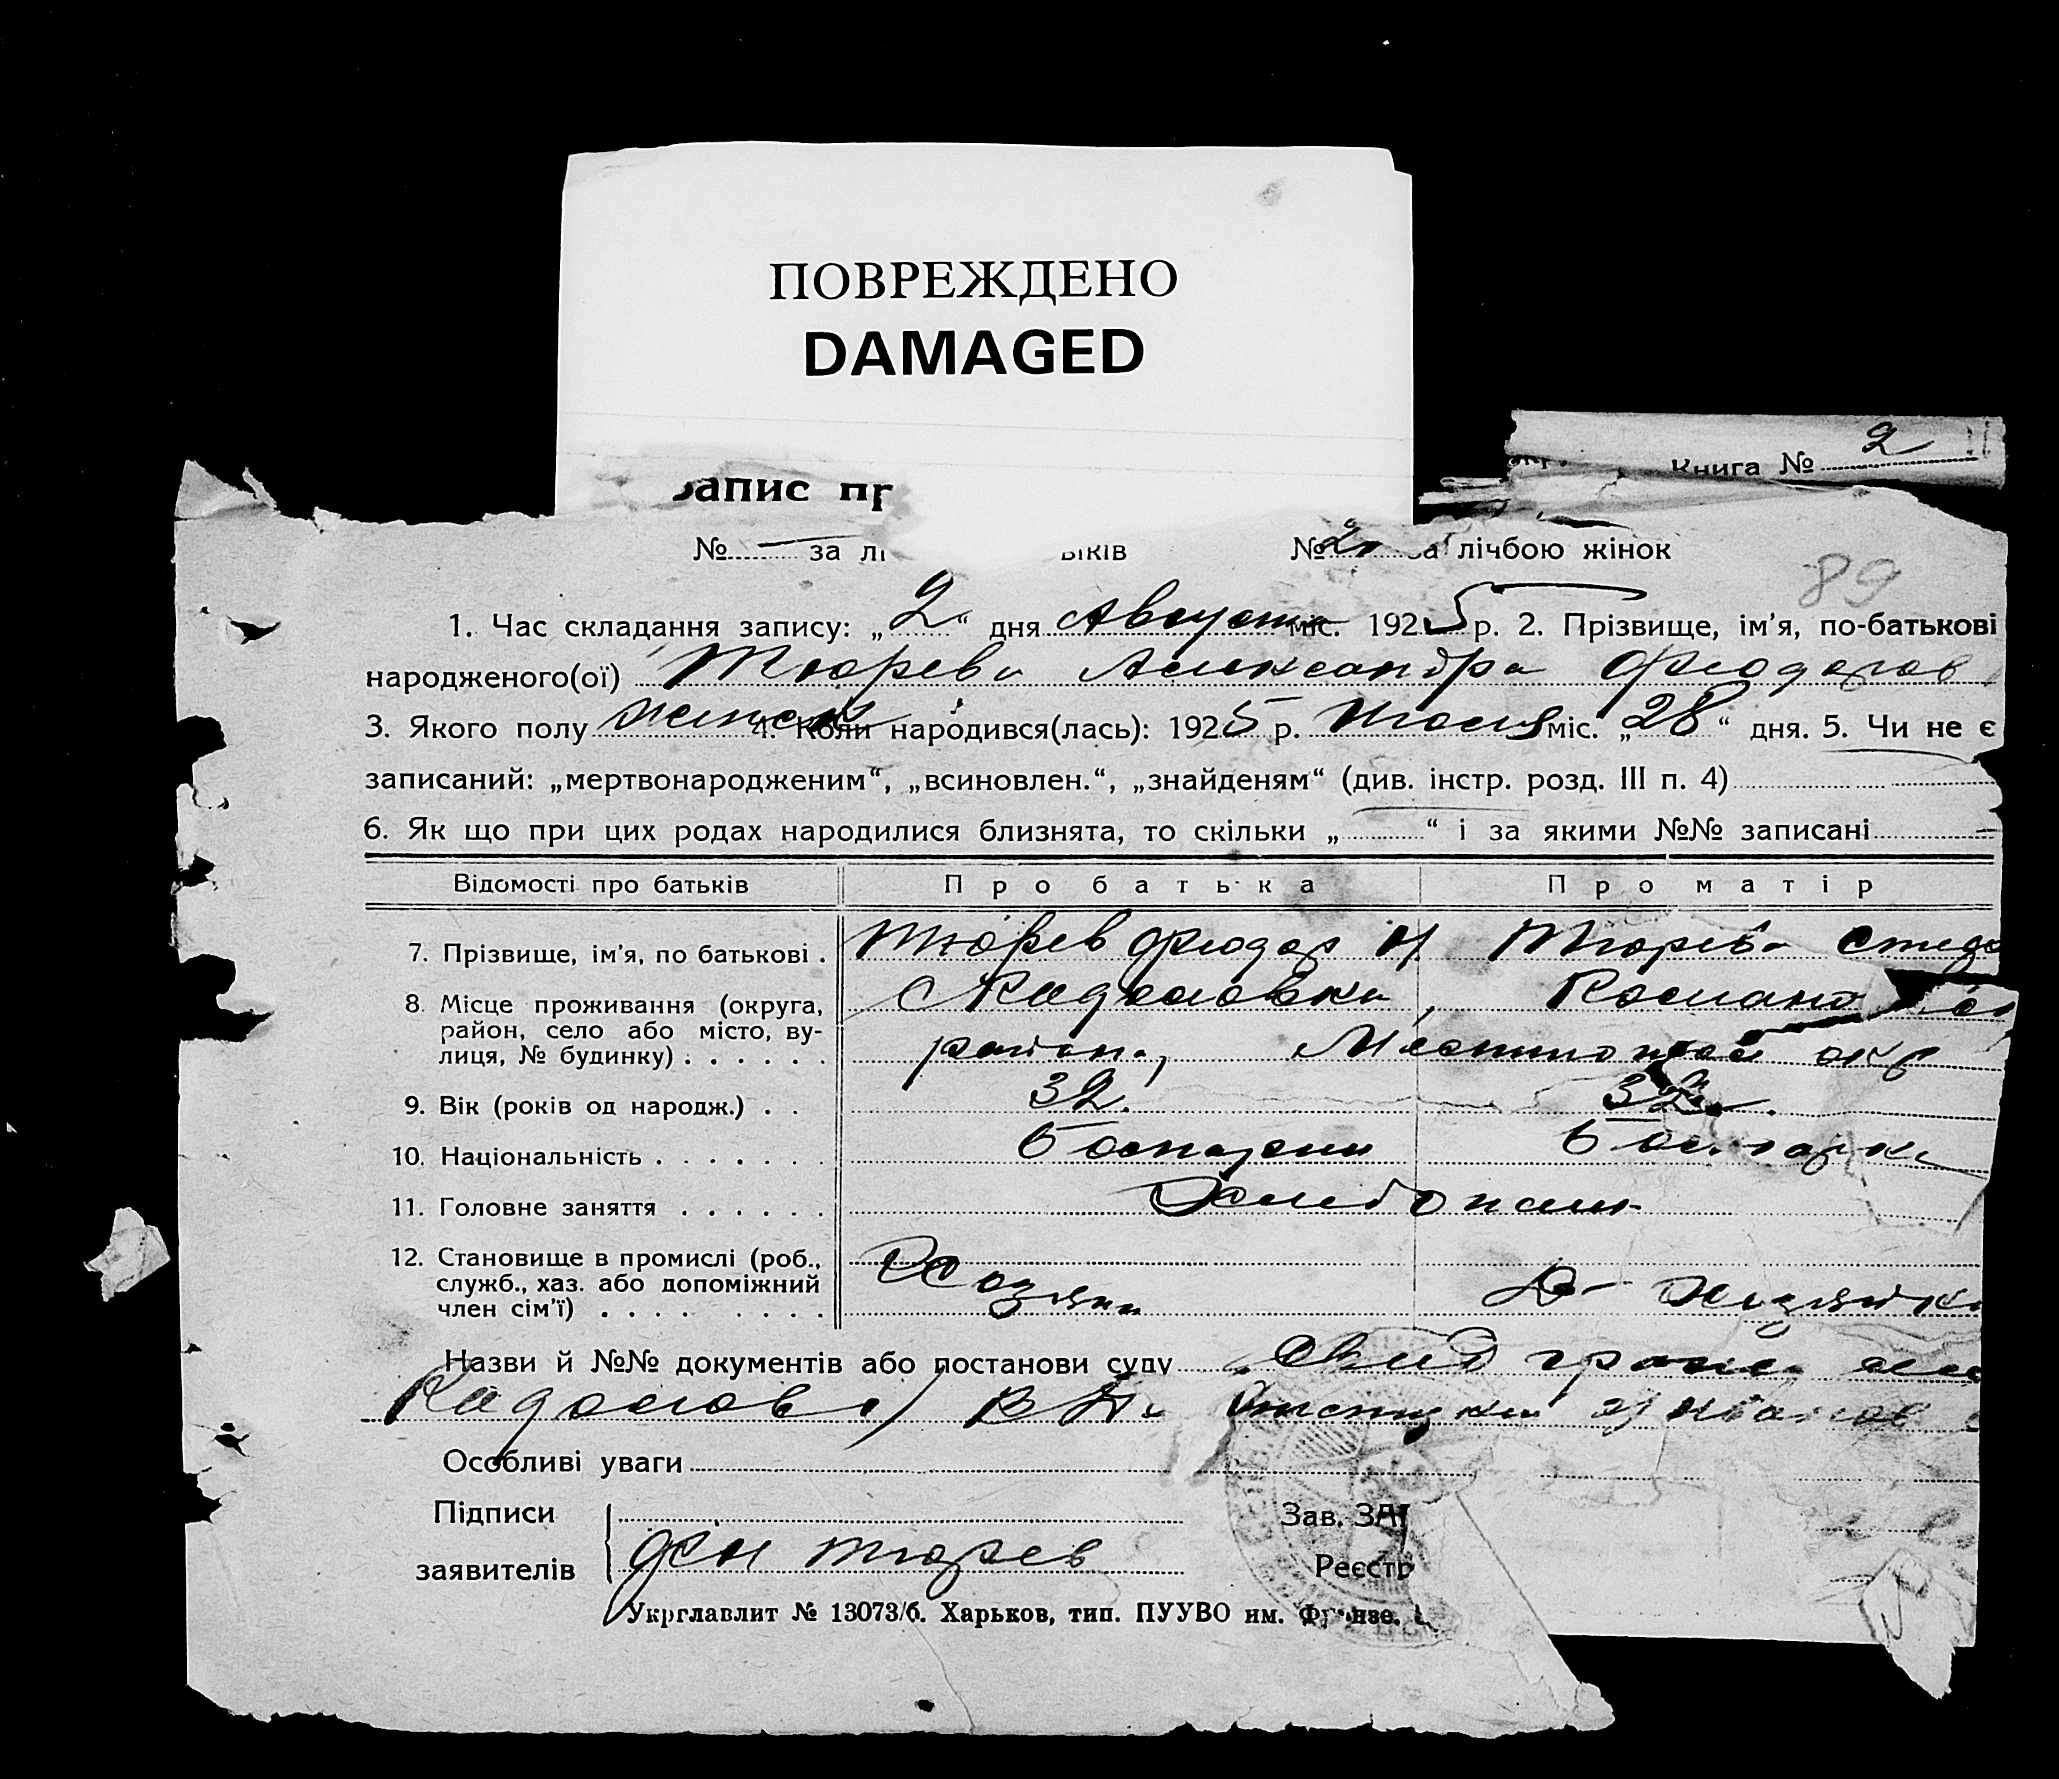 ПОВРЕЖДЕНО
DAMAGED
Книга № 2
Запис пр
№ — за лі ьіків № 2 за лічбою жінок
89
1. Час складання запису: „2“ дня Августа міс. 1925 р. 2. Прізвище, ім'я, по-батькові
народженого(ої) Тюрева Александра Фіодоров
3. Якого полу женск 4. Коли народився(лась): 1925 р. Июля міс. „28“ дня. 5. Чи не є
записаний: „мертвонародженим“, „всиновлен.“, „знайденям“ (див. інстр. розд. III п. 4)
6. Як що при цих родах народилися близнята, то скільки „ “ і за якими №№ записані —
Відомості про батьків Про батька Про матір
7. Прізвище, ім'я, по батькові . Тюрев Фіодор И Тюрева
8. Місце проживання (округа, район, село або місто, вулиця, № будинку) . . . . . . с Радоловка, Романо
район, окр
9. Вік (років од народж.) . . 32. 32.
10. Національність . . . . . . . болгарин болгарка
11. Головне заняття . . . . . . Хлебопаш.
12. Становище в промислі (роб., служб., хаз. або допоміжний член сім'ї) . . . . . . . . Хозяин Д- Хозяйка
Назви й №№ документів або постанови суду
Особливі уваги
Підписи Зав. ЗАГ
заявителів Тюрев Реєстр
Укрглавлит № 13073/б. Харьков, тип. ПУУВО им. Фрунзе.